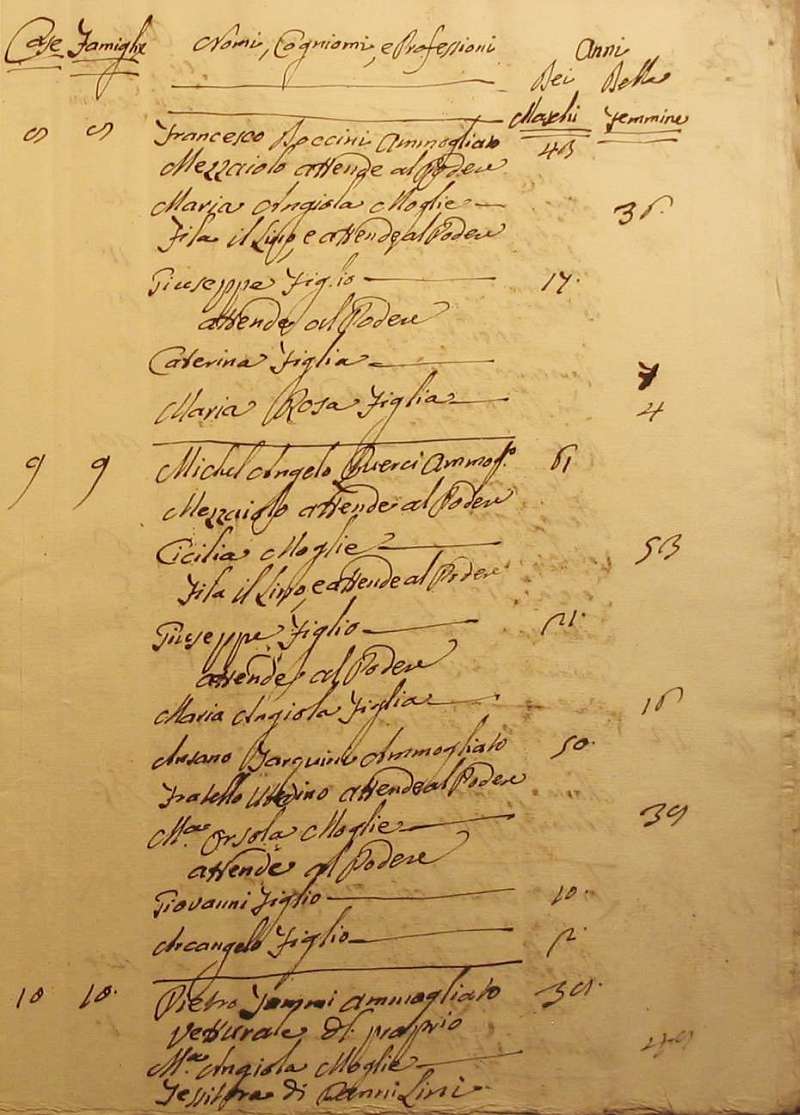 Case Famiglie Nomi, Cogniomi, e Professioni Anni
Dei Delle
Maschi Femmine
8 8 Francesco Boccini Ammogliato 43
Mezzaiolo attende al Podere
Maria Angiola Moglie 36.
Fila il Lino, e attende al Podere
Giuseppe Figlio 17.
attende al Podere
Caterina Figlia 7
Maria Rosa Figlia 4
9 9 Michel Angelo Querci Ammog.to 61
Mezzaiolo attende al Podere
Cicilia Moglie 53
Fila il Lino, e attende al Podere
Giuseppe Figlio 21.
attende al Podere
Maria Angiola Figlia 16
Ansano Tarquini Ammogliato 50.
Fratello Uterino attende al Podere
M.a Orsola Moglie 39
attende al Podere
Giovanni Figlio 10.
Arcangelo Figlio 2.
10 10. Pietro Ammogliato 39.
Vetturale di proprio
M.a Angiola Moglie
Tessitora di Panni Lini